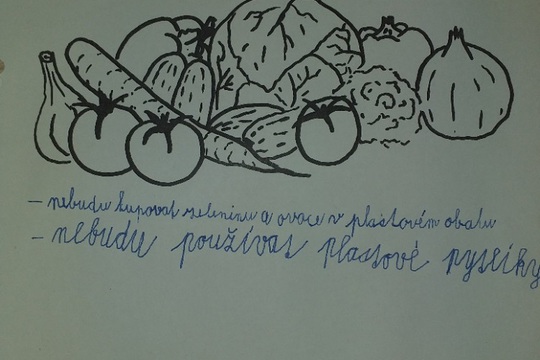 - nebudu kupovat zeleninu a ovoce v plastovém obalu
- nebudu používat plastové pytlíky